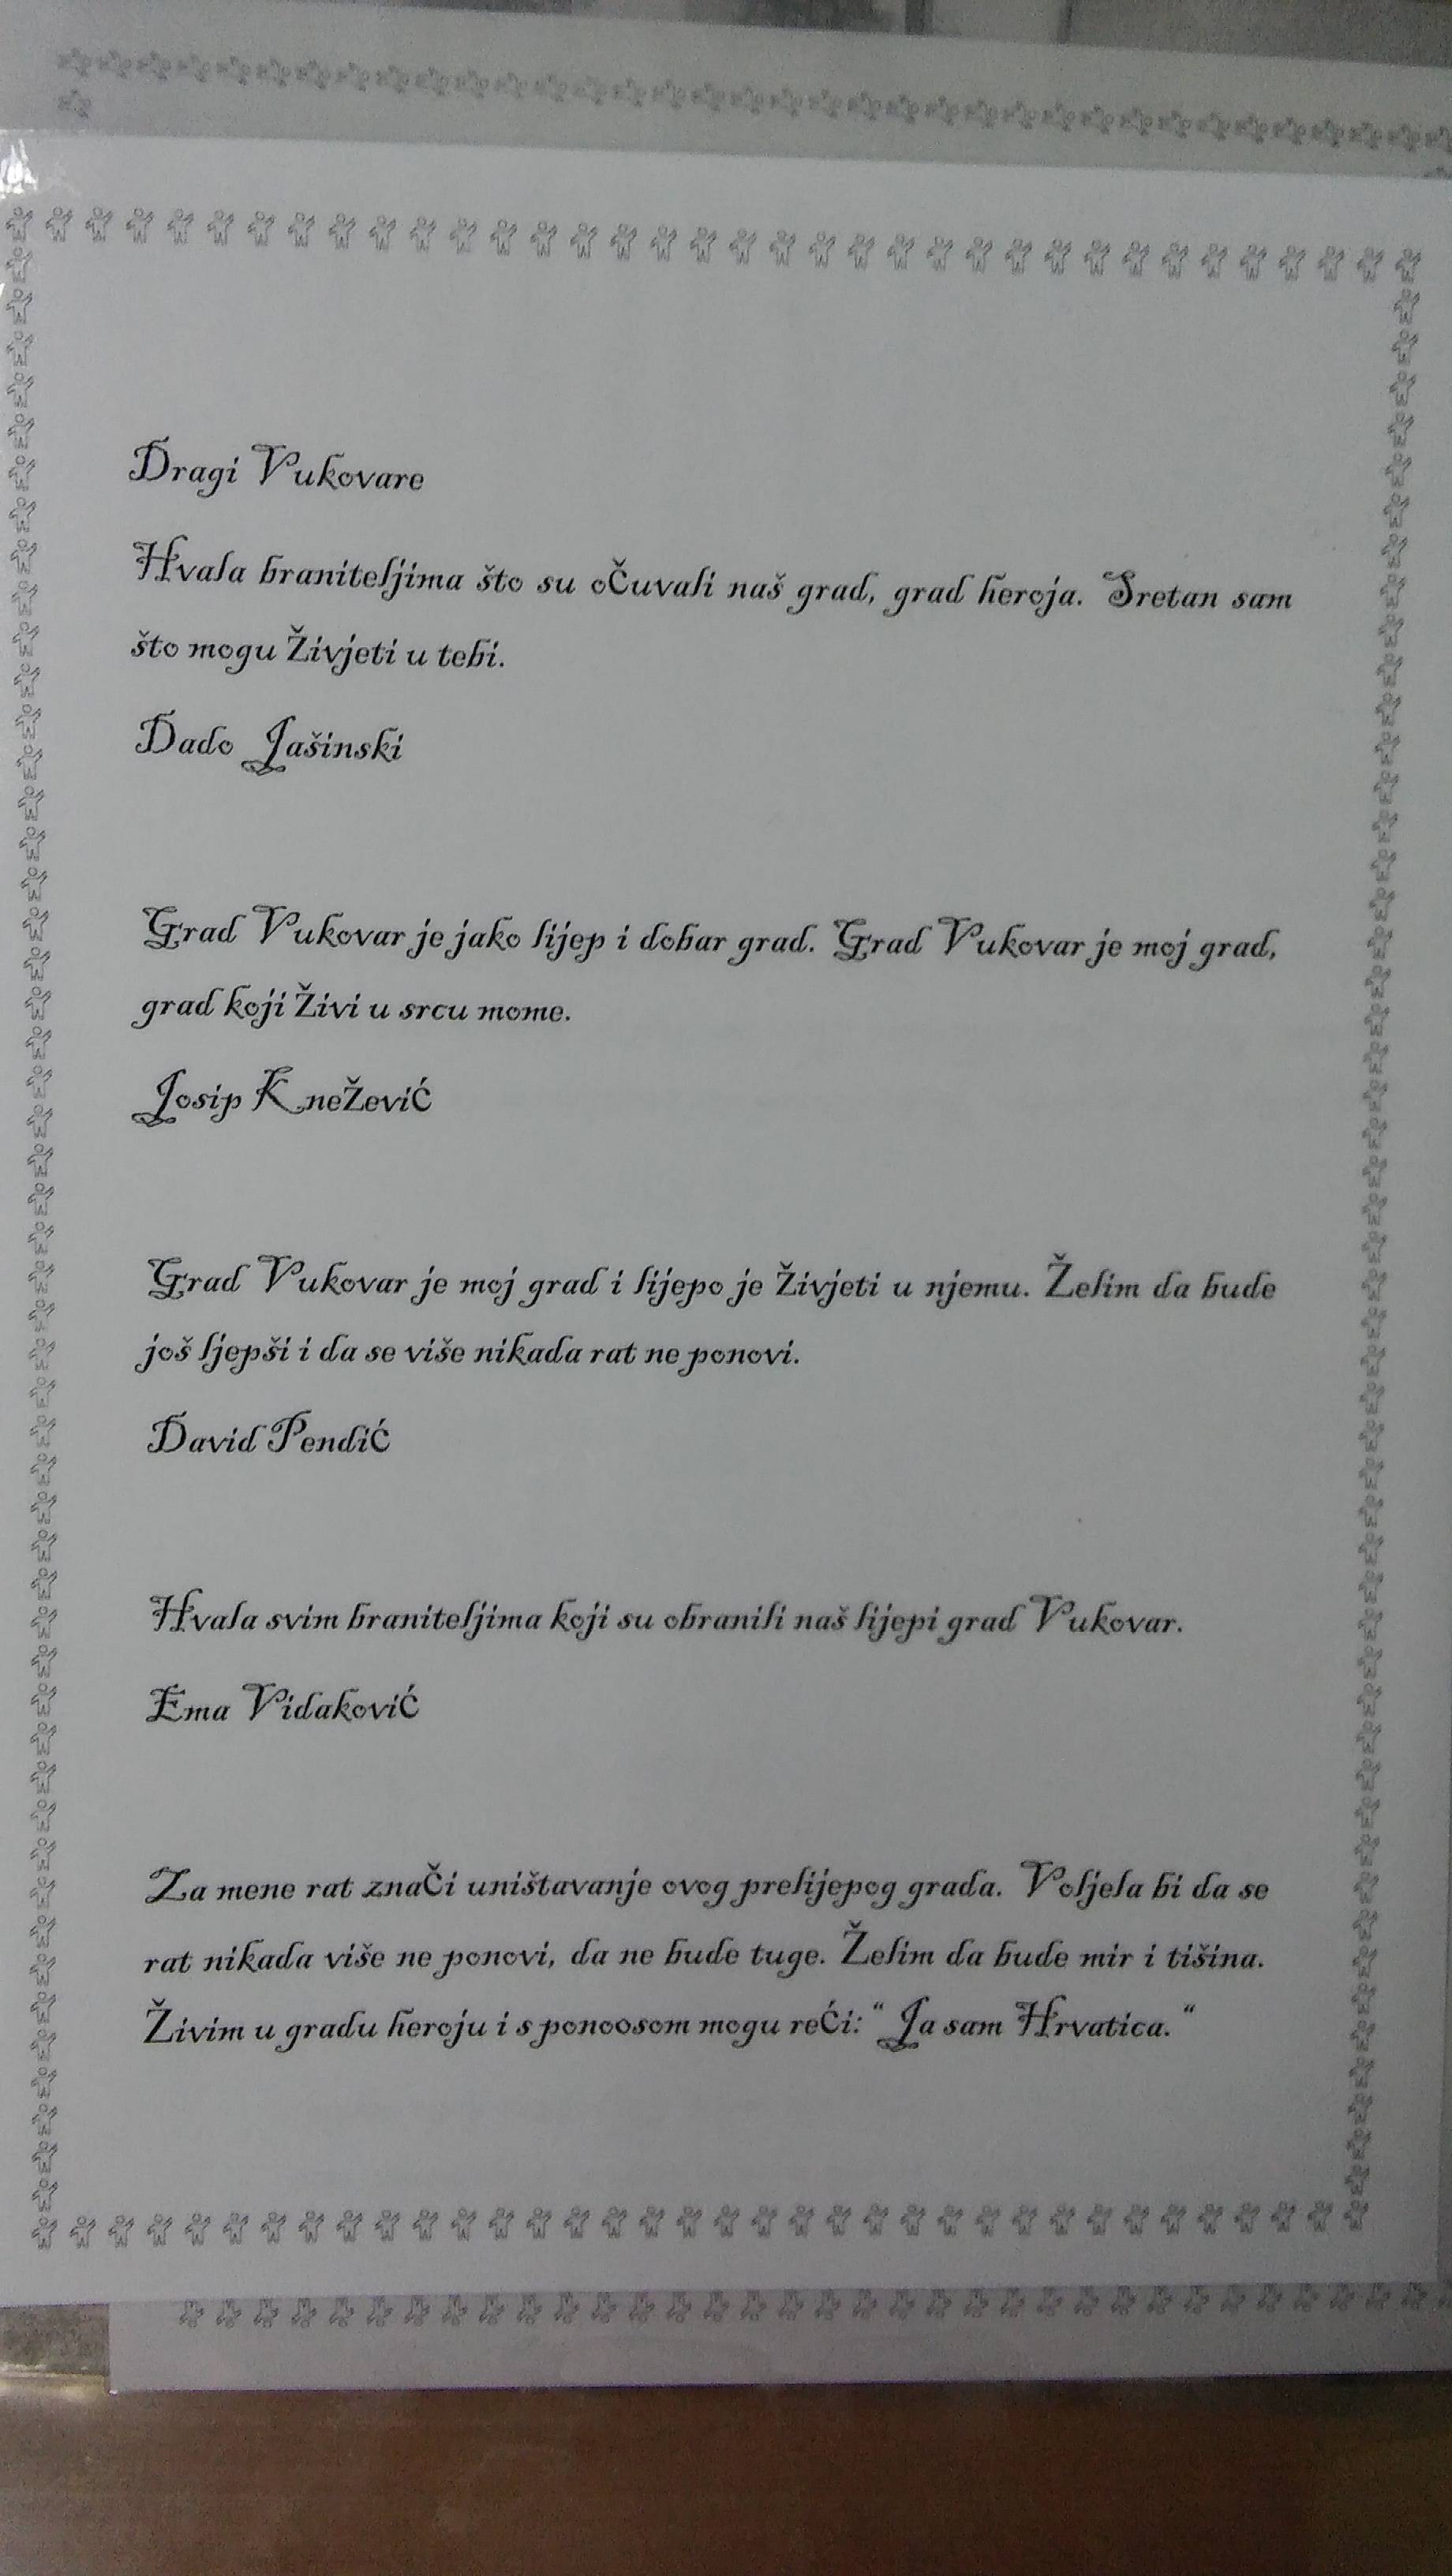 Dragi Vukovare
Hvala braniteljima što su očuvali naš grad, grad heroja. Sretan sam
što mogu živjeti u tebi.
Dado Jašinski
Grad Vukovar je jako lijep i dobar grad. Grad Vukovar je moj grad,
grad koji živi u srcu mome.
Josip Knežević
Grad Vukovar je moj grad i lijepo je živjeti u njemu. Želim da bude
još ljepši i da se više nikada rat ne ponovi.
David Pendić
Hvala svim braniteljima koji su obranili naš lijepi grad Vukovar.
Ema Vidaković
Za mene rat znači uništavanje ovog prelijepog grada. Voljela bi da se
rat nikada više ne ponovi, da ne bude tuge. Želim da bude mir i tišina.
Živim u gradu heroju i s ponoosom mogu reći: “ Ja sam Hrvatica. “